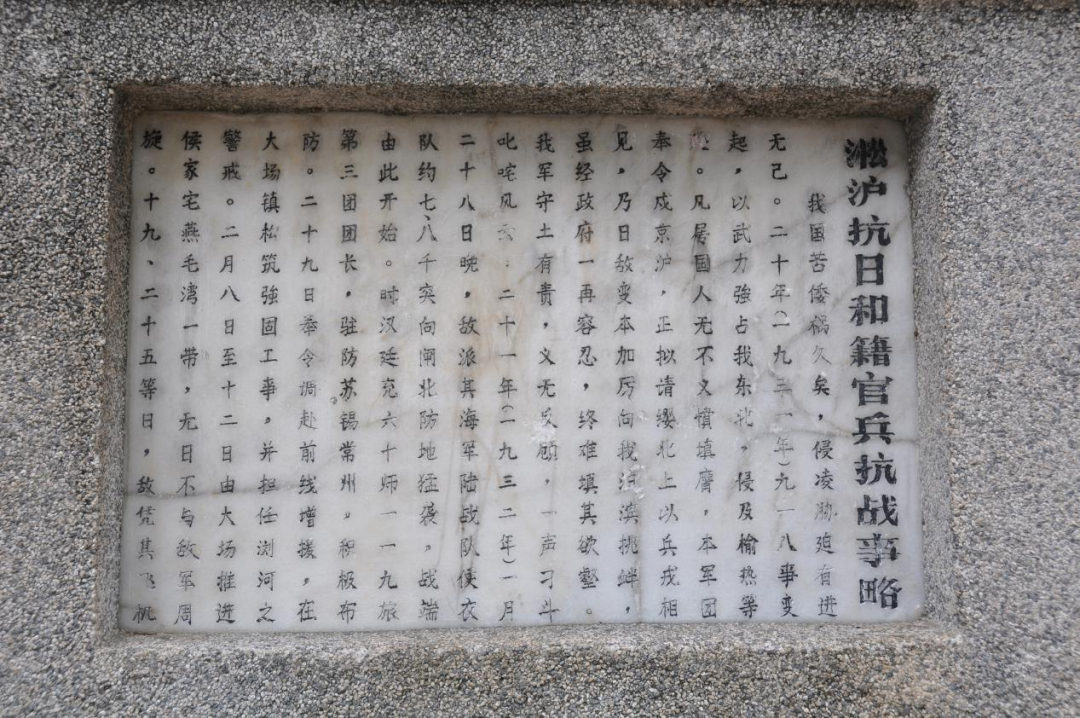 淞沪抗日和籍官兵抗战事略
我国苦倭祸久矣，侵凌胁迫有进
无已。二十年（一九三一年）九一八事变
起，以武力強占我东北，侵及榆热等
。凡居国人无不义憤填膺，本军团
奉令戍京沪，正拟请缨北上以兵戎相
见，乃日敌变本加厉向我沪滨挑衅，
虽经政府一再容忍，终难填其欲壑。
我军守土有责，义无反顾，一声刁斗
叱咤风云．二十一年（一九三二年）一月
二十八日晚，敌派其海军陆战队便衣
队约七、八千突向闸北防地猛袭。战端
由此开始。时汉廷充六十师一一九旅
第三团团长，驻防苏锡常州。积极布
防。二十九日奉令调赴前线增援，在
大场镇松筑強固工事。并担任浏河之
警戒。二月八日至十二日由大场推进
侯家宅燕毛湾一带，无日不与敌军周
旋。十九、二十五等日，敌凭其飞机